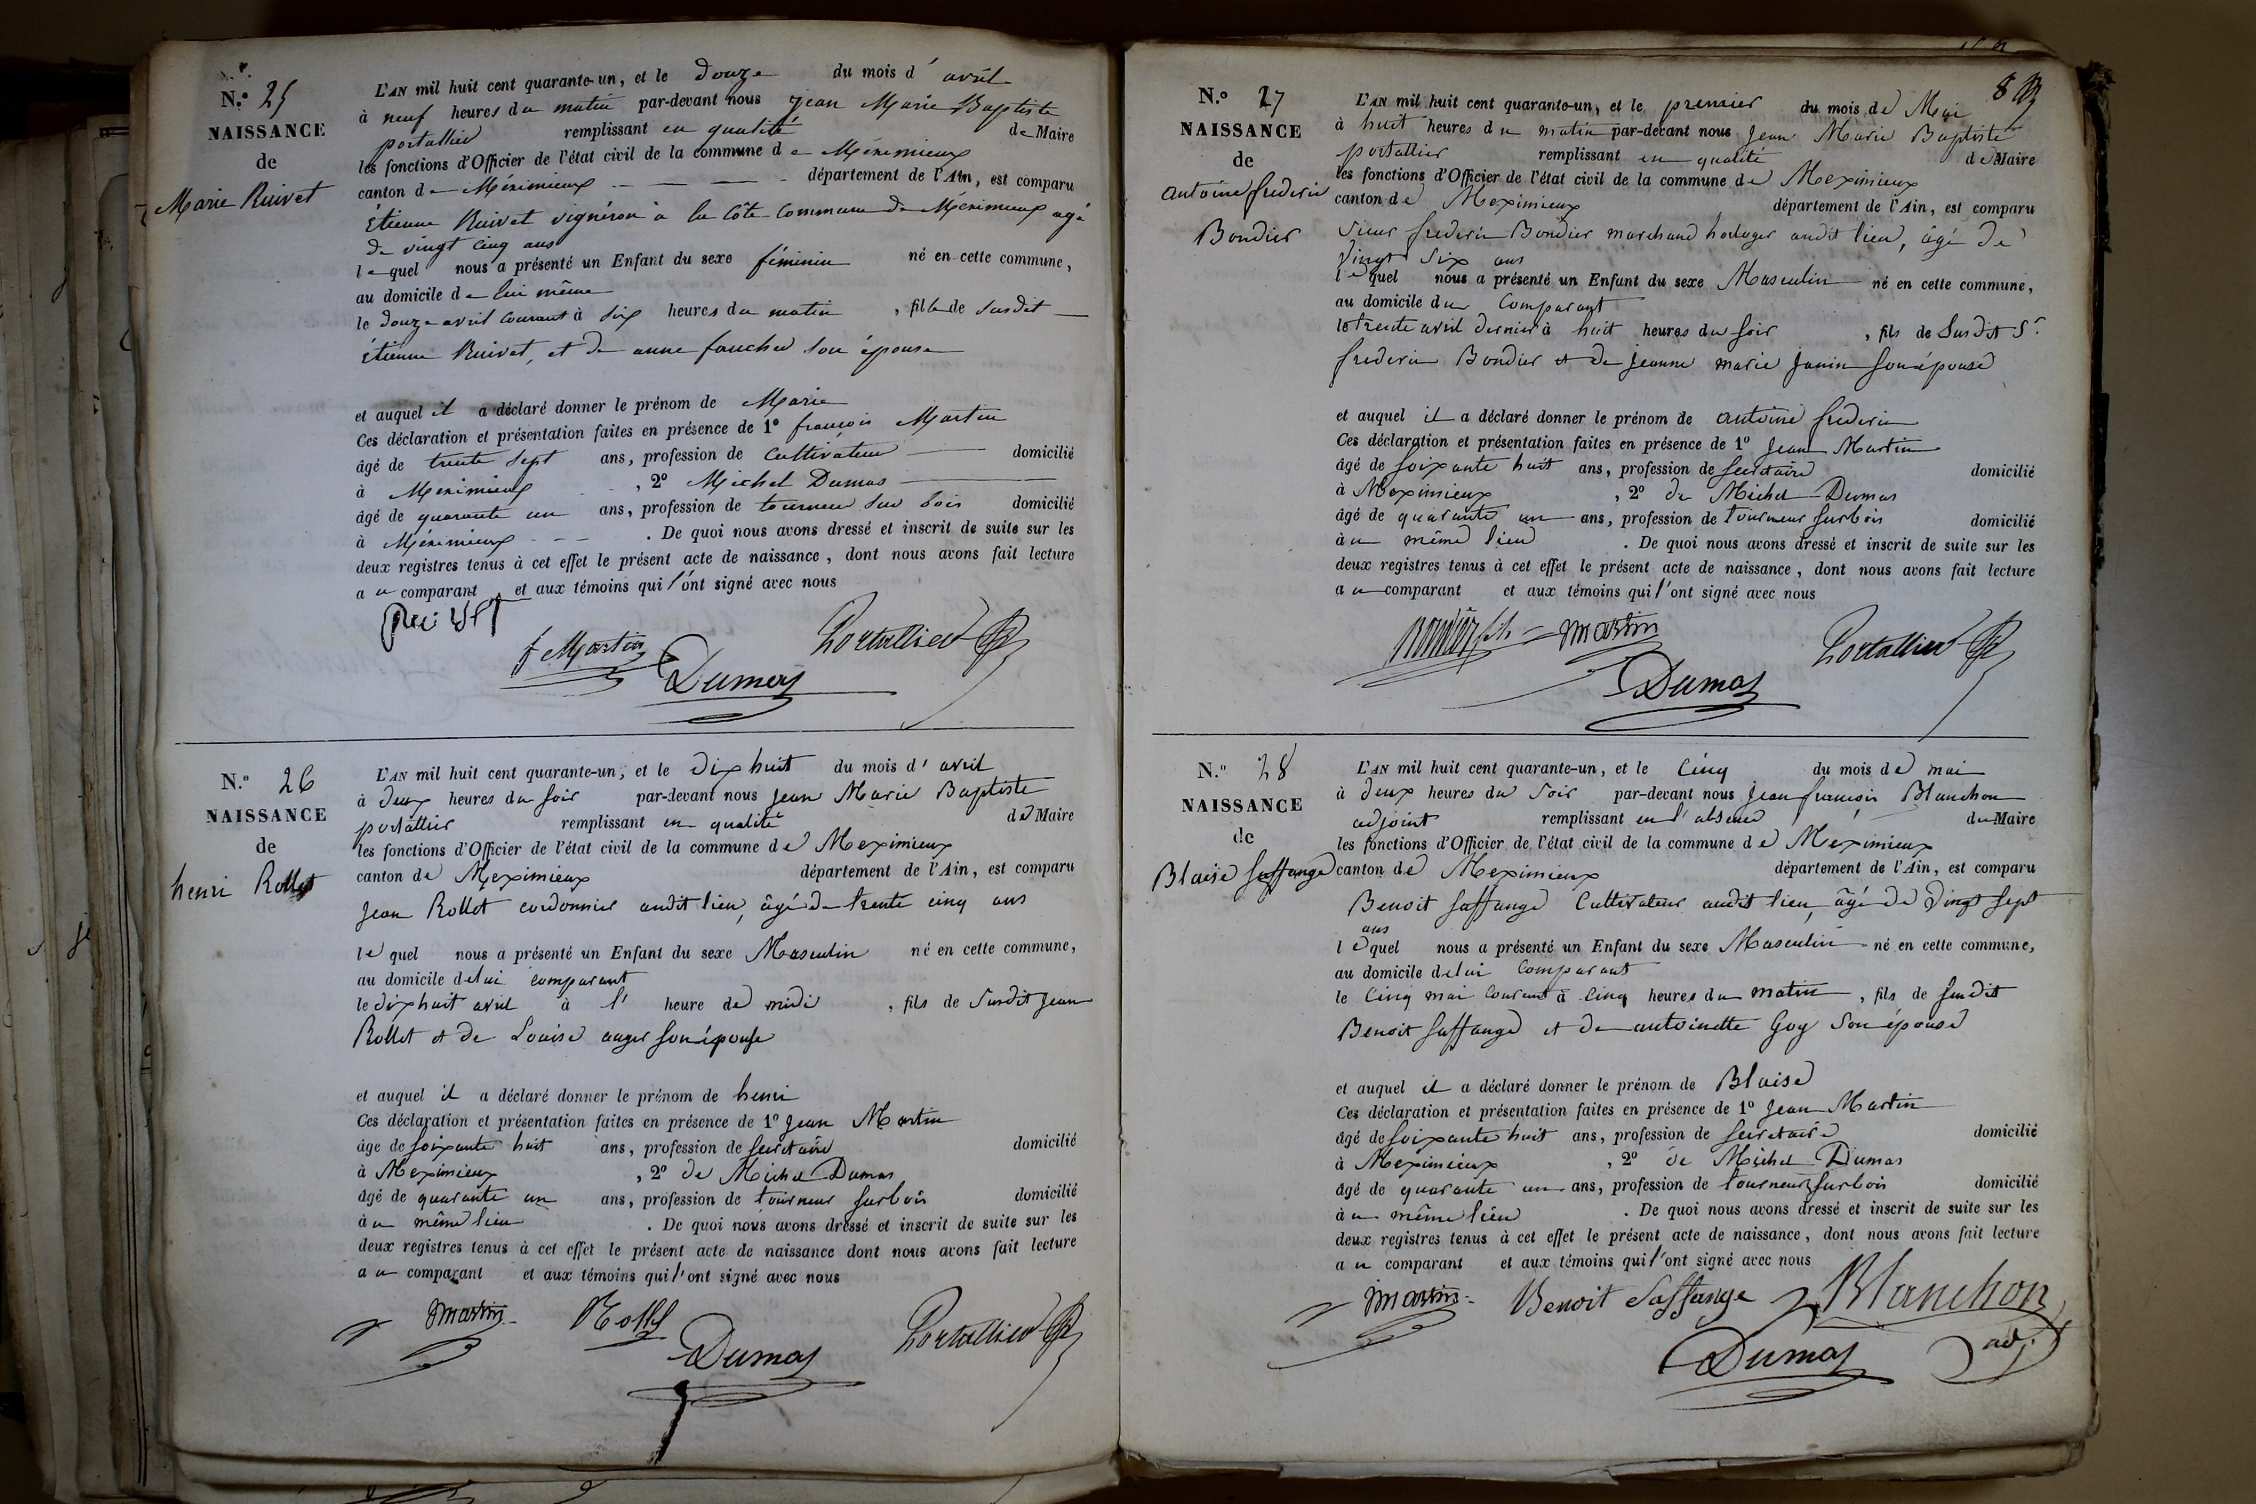 N.º 25
NAISSANCE
de
Marie Ruivet
L'AN mil huit cent quarante-un, et le douze du mois d' avril
à neuf heures du matin par-devant nous Jean Marie Baptiste
portallier remplissant en qualité de Maire
les fonctions d'Officier de l'état civil de la commune de Meximieux
canton de Meximieux département de l'Ain, est comparu
Étienne Ruivet vigneron à la Côte Commune de Meximieux agé
de vingt cinq ans
lequel nous a présenté un Enfant du sexe féminin né en cette commune,
au domicile de lui même
le douze avril courant à six heures du matin , fille de susdit
étienne Ruivet, et de anne faucher son épouse
et auquel il a déclaré donner le prénom de Marie
Ces déclaration et présentation faites en présence de 1º françois Martin
âgé de trente sept ans, profession de cultivateur domicilié
à Meximieux , 2º Michel Dumas
âgé de quarante un ans, profession de tourneur sur bois domicilié
à Meximieux . De quoi nous avons dressé et inscrit de suite sur les
deux registres tenus à cet effet le présent acte de naissance, dont nous avons fait lecture
au comparant et aux témoins qui l'ont signé avec nous
f Martin
Dumas
Portallier
N.º 26
NAISSANCE
de
henri Rollet
L'AN mil huit cent quarante-un, et le dix huit du mois d' avril
à deux heures du soir par-devant nous Jean Marie Baptiste
portallier remplissant en qualité de Maire
les fonctions d'Officier de l'état civil de la commune de Meximieux
canton de Meximieux département de l'Ain, est comparu
Jean Rollet cordonnier audit lieu, âgé de trente cinq ans
lequel nous a présenté un Enfant du sexe Masculin né en cette commune,
au domicile de lui comparant
le dix huit avril à l' heure de midi , fils de susdit Jean
Rollet et de Louise auger son épouse
et auquel il a déclaré donner le prénom de henri
Ces déclaration et présentation faites en présence de 1º Jean Martin
âgé de soixante huit ans, profession de secretaire domicilié
à Meximieux , 2º de Michel Dumas
âgé de quarante un ans, profession de tourneur sur bois domicilié
à u même lieu . De quoi nous avons dressé et inscrit de suite sur les
deux registres tenus à cet effet le présent acte de naissance dont nous avons fait lecture
au comparant et aux témoins qui l'ont signé avec nous
martin Rollet
Dumas
Portallier
8
N.º 27
NAISSANCE
de
antoine frederic
Bondier
L'AN mil huit cent quarante-un, et le premier du mois de Mai
à huit heures du matin par-devant nous Jean Marie Baptiste
portallier remplissant en qualité de Maire
les fonctions d'Officier de l'état civil de la commune de Meximieux
canton de Meximieux département de l'Ain, est comparu
sieur frederic Bondier marchand horloger audit lieu, âgé de
vingt six ans
lequel nous a présenté un Enfant du sexe Masculin né en cette commune,
au domicile du comparant
le trente avril dernier à huit heures du soir , fils de susdit Sr
frederic Bondier et de jeanne marie Janin son épouse
et auquel il a déclaré donner le prénom de antoine frederic
Ces déclaration et présentation faites en présence de 1º Jean Martin
âgé de soixante huit ans, profession de secretaire domicilié
à Meximieux , 2º de Michel Dumas
âgé de quarante un ans, profession de tourneur sur bois domicilié
à u même lieu . De quoi nous avons dressé et inscrit de suite sur les
deux registres tenus à cet effet le présent acte de naissance, dont nous avons fait lecture
au comparant et aux témoins qui l'ont signé avec nous
Bondier fils martin
Dumas
Portallier
N.º 28
NAISSANCE
de
Blaise Saffange
L'AN mil huit cent quarante-un, et le cinq du mois de mai
à deux heures du soir par-devant nous Jean françois Blanchon
adjoint remplissant en l'absence du Maire
les fonctions d'Officier de l'état civil de la commune de Meximieux
canton de Meximieux département de l'Ain, est comparu
Benoit Saffange Cultivateur audit lieu, âgé de vingt sept
ans
lequel nous a présenté un Enfant du sexe Masculin né en cette commune,
au domicile de lui comparant
le cinq mai courant à cinq heures du matin , fils de susdit
Benoit Saffange et de antoinette Goy son épouse
et auquel il a déclaré donner le prénom de Blaise
Ces déclaration et présentation faites en présence de 1º Jean Martin
âgé de soixante huit ans, profession de secretaire domicilié
à Meximieux , 2º de Michel Dumas
âgé de quarante un ans, profession de tourneur sur bois domicilié
à u même lieu . De quoi nous avons dressé et inscrit de suite sur les
deux registres tenus à cet effet le présent acte de naissance, dont nous avons fait lecture
au comparant et aux témoins qui l'ont signé avec nous
martin Benoit Saffange Blanchon
Dumas adj.